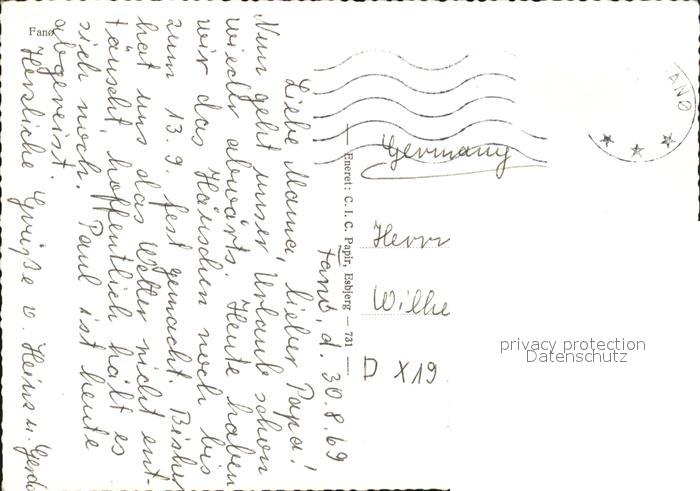 Fanø
Fanö, d. 30.8.69
Liebe Mama, lieber Papa!
Nun geht unser Urlaub schon
wieder abwärts. Heute haben
wir das Häuschen noch bis
zum 13.9. fest gemacht. Bisher
hat uns das Wetter nicht ent-
täuscht, hoffentlich hält es
sich noch. Paul ist heute
abgereist.
Herzliche Grüße v. Heinz u. Gerda
Eneret: C.I.C. Papir, Esbjerg — 731
ANØ
Germany
Herrn
Wilhe
D X19
privacy protection
Datenschutz